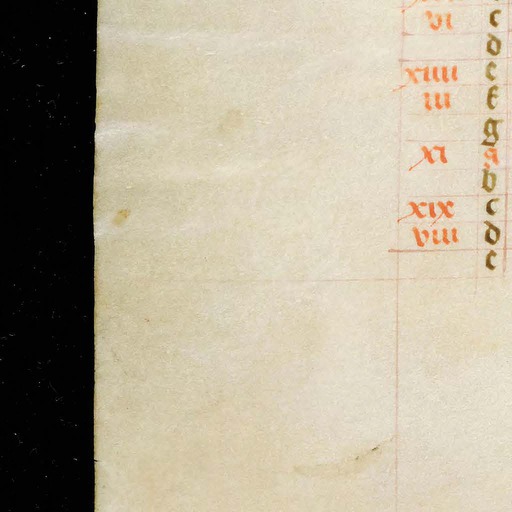 vi c
d
xiiii e
iii f
g
xi a
b
xix c
viii d
e